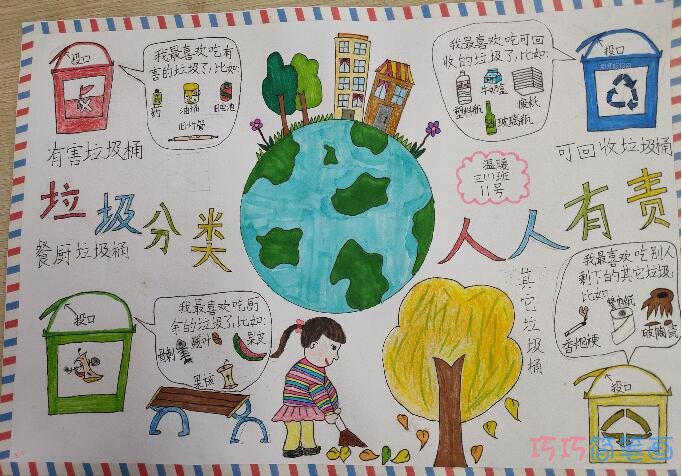 投口
我最喜欢吃有
害的垃圾了，比如：
药
油桶
旧电池
旧灯管
有害垃圾桶
我最喜欢吃可回
收的垃圾了，比如：
塑料瓶
牛奶盒
废纸
玻璃瓶
投口
可回收垃圾桶
温暖
三（1）班
11号
垃圾分类
人人有责
餐厨垃圾桶
投口
我最喜欢吃厨
余的垃圾了，比如：
果皮
果核
其它垃圾桶
我最喜欢吃别人
剩下的其它垃圾
比如
香烟辣
破陶瓷
投口
巧巧简笔画